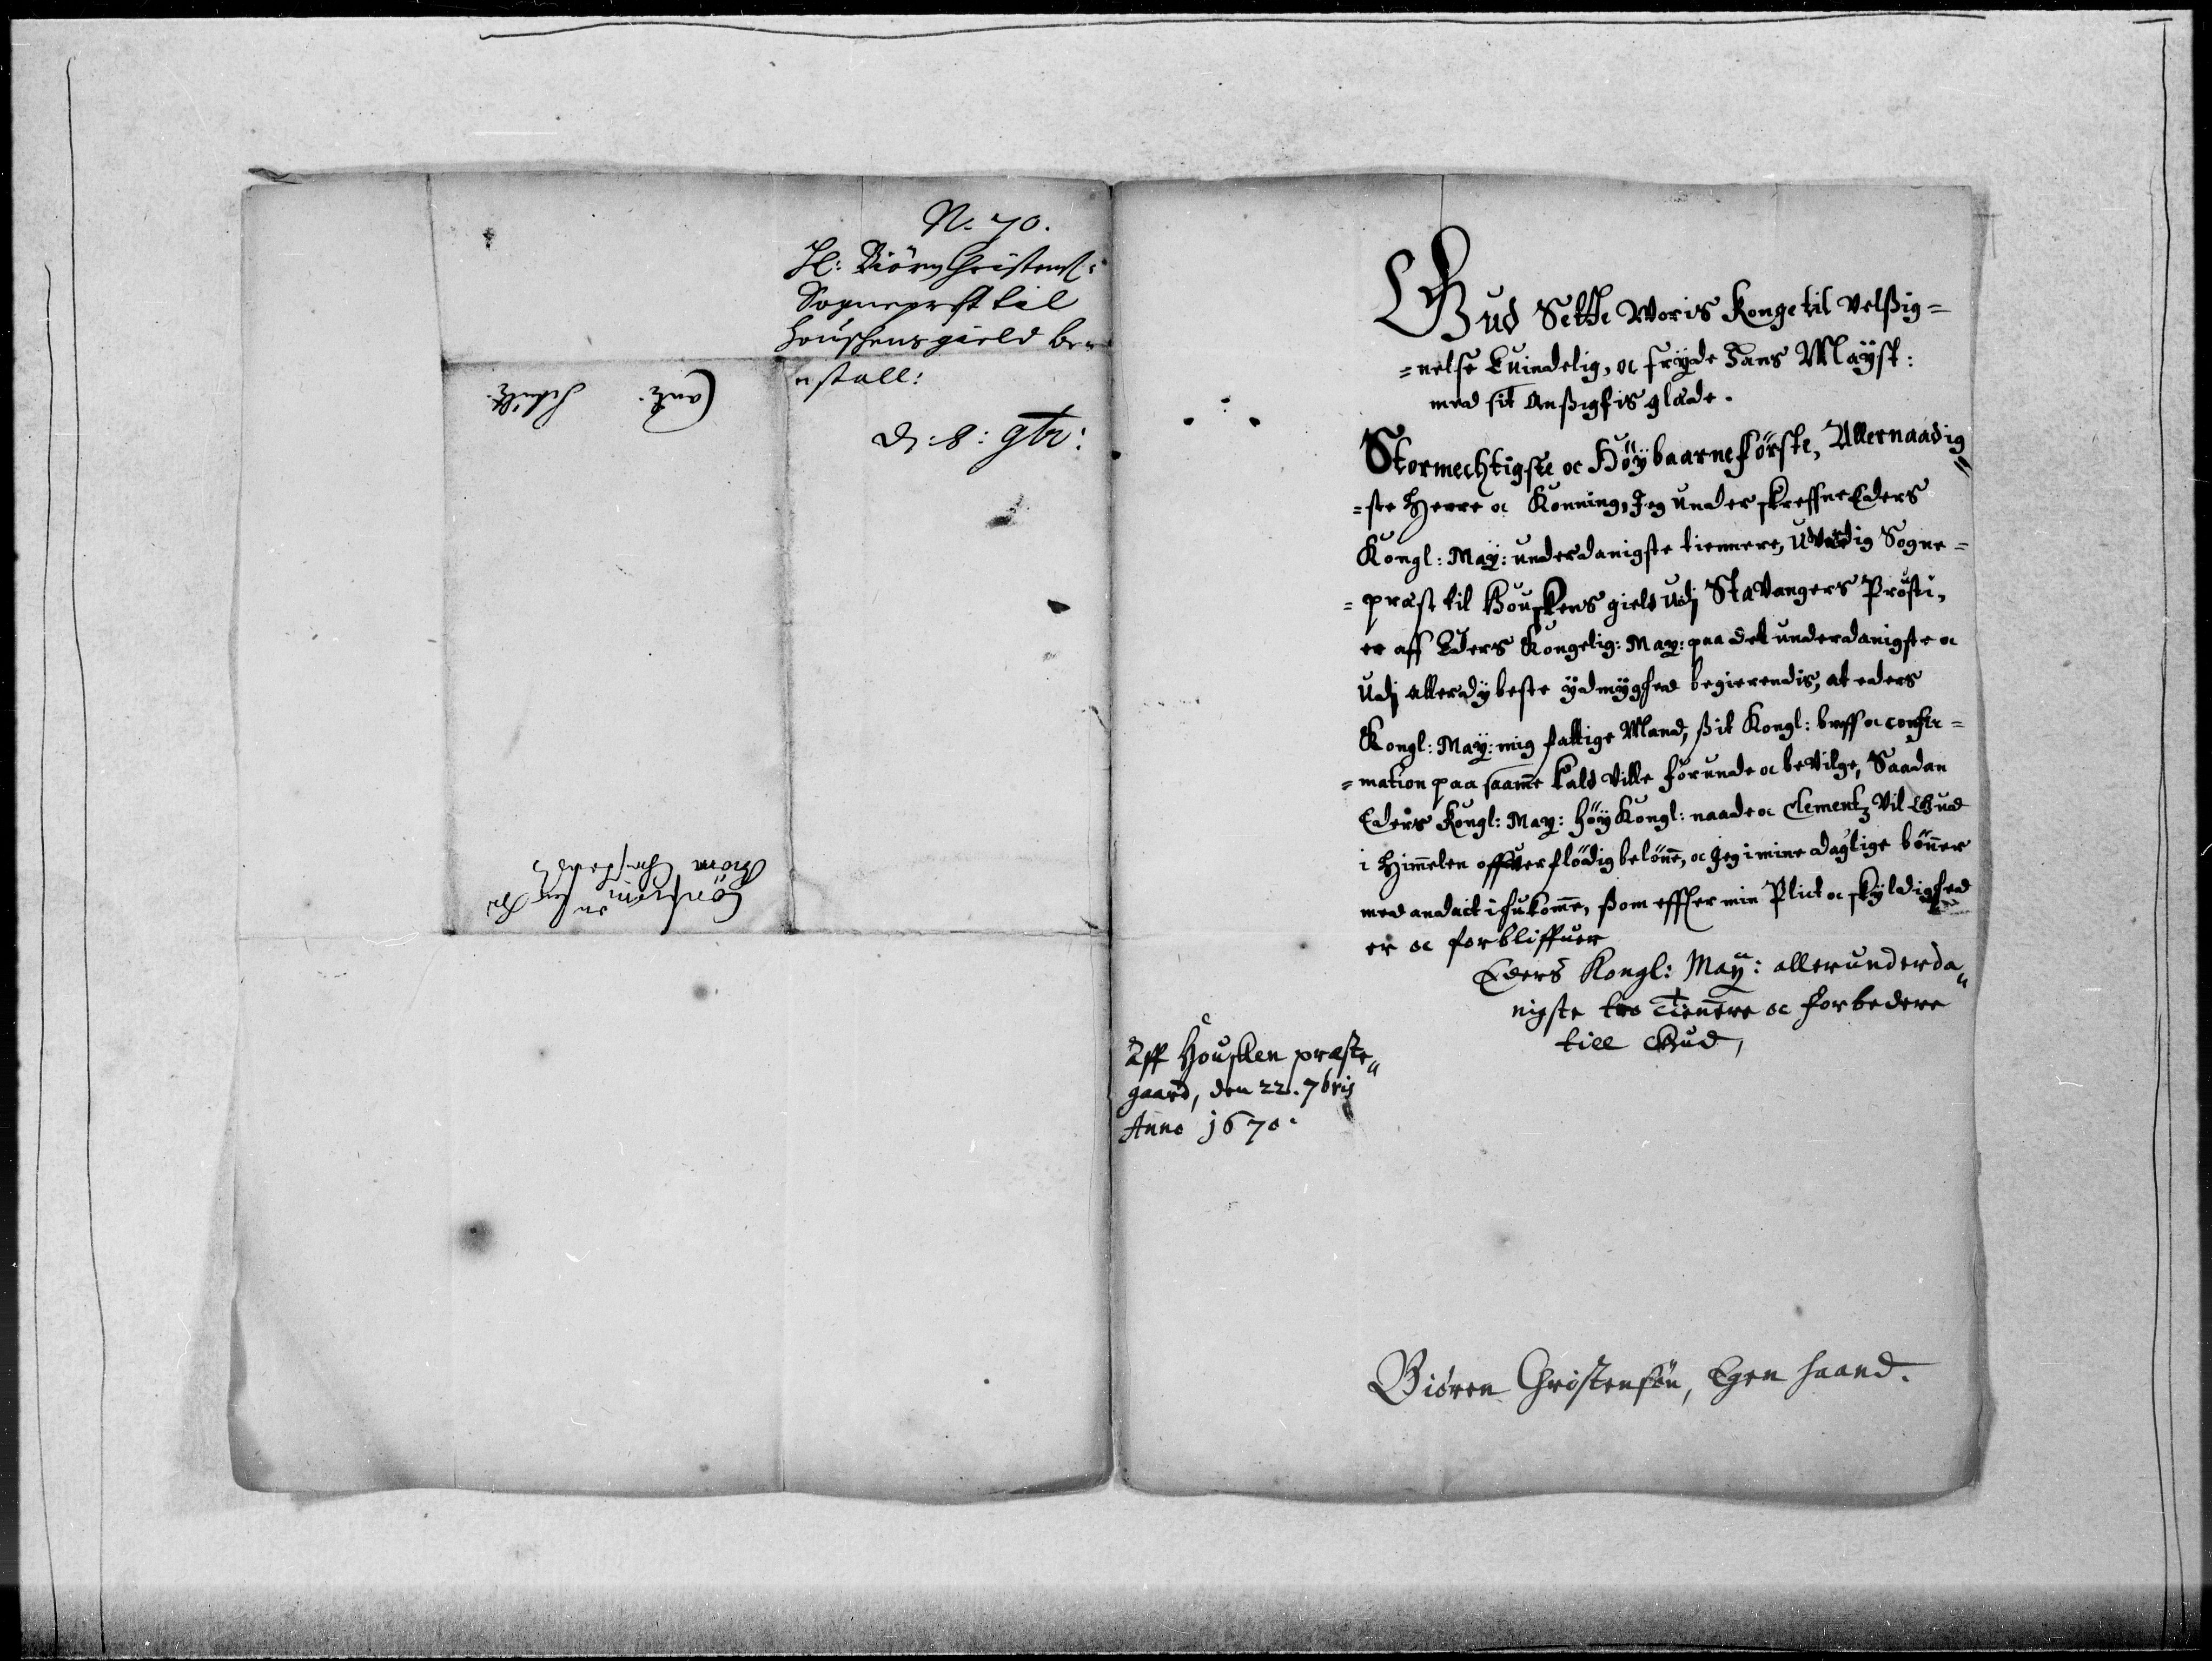 N. 70.
Hl: Biörn Christens:
Sogneprest til
Houskens gield be-
nstall:
D: 8: 9br:
Cantz: Schultz
Biörn Christens
Gud Sette Woris konge til Velßig=
=nelse Euindelig, oc fryde Hans Mayst:
med sit Anßigtis glæde.
Stormechtigste oc Höybaarne förste, Allernaadig
=ste Herre oc Konning, Jeg underskreffne Eders
Kongl: May: underdanigste tiennere, Uverdig Sogne=
=præst til Houskens gield udj Stavangers Prösti,
er aff Eders Kongelig: May: paa det underdanigste oc
Udj Allerdybeste ydmyghed begierendis, at eders
Kongl: May: mig fattige Mand, ßit Kongl: breff oc confir=
=mation paa saame Kald Ville forunde oc beVilge, Saadan
Eders Kongl: May: höy Kongl: naade oc Clementz Vil Gud
i Himelen offverflödig belöne, oc Jeg i mine daglige böner
med andact ihukome, ßom effter min Plict oc skyldighed
er oc forbliffuer
Eders Kongl: May: allerunderda"
nigste tro Tienere oc forbedere
till Gud,
Aff Housken præste"
gaard, den 22. 7bris
Anno 1670.
Biören Christensön, Egen haand.